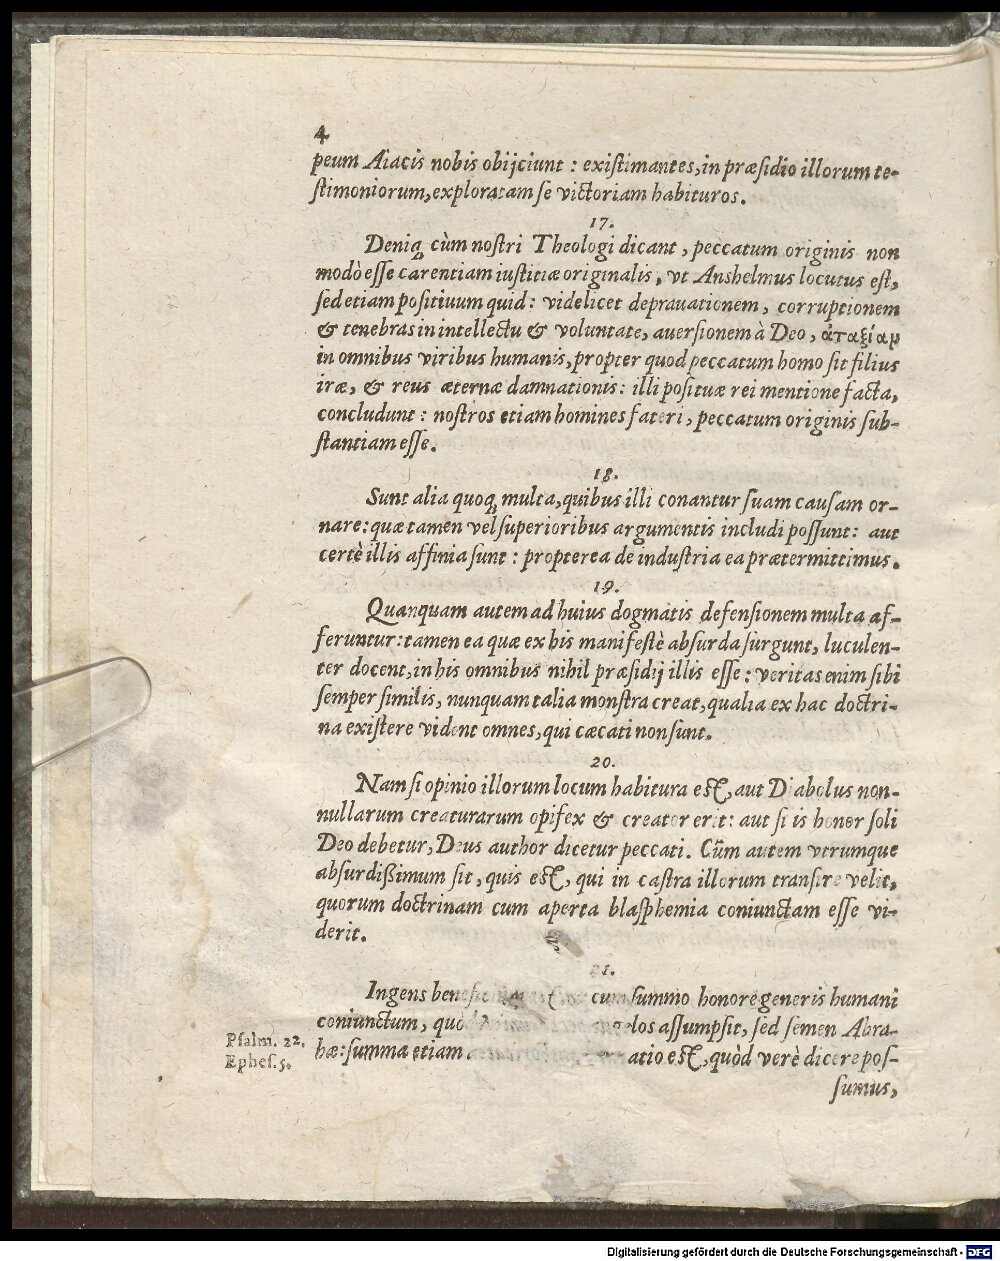 4
peum Aiacis nobis obijciunt : existimantes, in præsidio illorum te-
stimoniorum, exploratam se victoriam habituros.
17.
Deniq; cùm nostri Theologi dicant, peccatum originis non
modò esse carentiam iustitiæ originalis, vt Anshelmus locutus est,
sed etiam positiuum quid: videlicet deprauationem, corruptionem
& tenebras in intellectu & voluntate, auersionem à Deo, ἀταξίαν
in omnibus viribus humanis, propter quod peccatum homo sit filius
iræ, & reus æternæ damnationis: illi posituæ rei mentione facta,
concludunt: nostros etiam homines fateri, peccatum originis sub-
stantiam esse.
18.
Sunt alia quoq; multa, quibus illi conantur suam causam or-
nare: quæ tamen vel superioribus argumentis includi possunt: aut
certè illis affinia sunt: propterea de industria ea prætermittimus.
19.
Quanquam autem ad huius dogmatis defensionem multa af-
feruntur: tamen ea quæ ex his manifestè absurda surgunt, luculen-
ter docent, in his omnibus nihil præsidij illis esse: veritas enim sibi
semper similis, nunquam talia monstra creat, qualia ex hac doctri-
na existere vident omnes, qui cæcati non sunt.
20.
Nam si opinio illorum locum habitura est, aut Diabolus non-
nullarum creaturarum opifex & creator erit: aut si is honor soli
Deo debetur, Deus author dicetur peccati. Cùm autem vtrumque
absurdißimum sit, quis est, qui in castra illorum transire velit,
quorum doctrinam cum aperta blasphemia coniunctam esse vi-
derit.
21.
Ingens cum summo honore generis humani
coniunctum, quòd assumpsit, sed semen Abra-
hæ: summa etiam est, quòd verè dicere pos-
sumus,
Psalm. 22.
Ephes. 5.
Digitalisierung gefördert durch die Deutsche Forschungsgemeinschaft - DFG